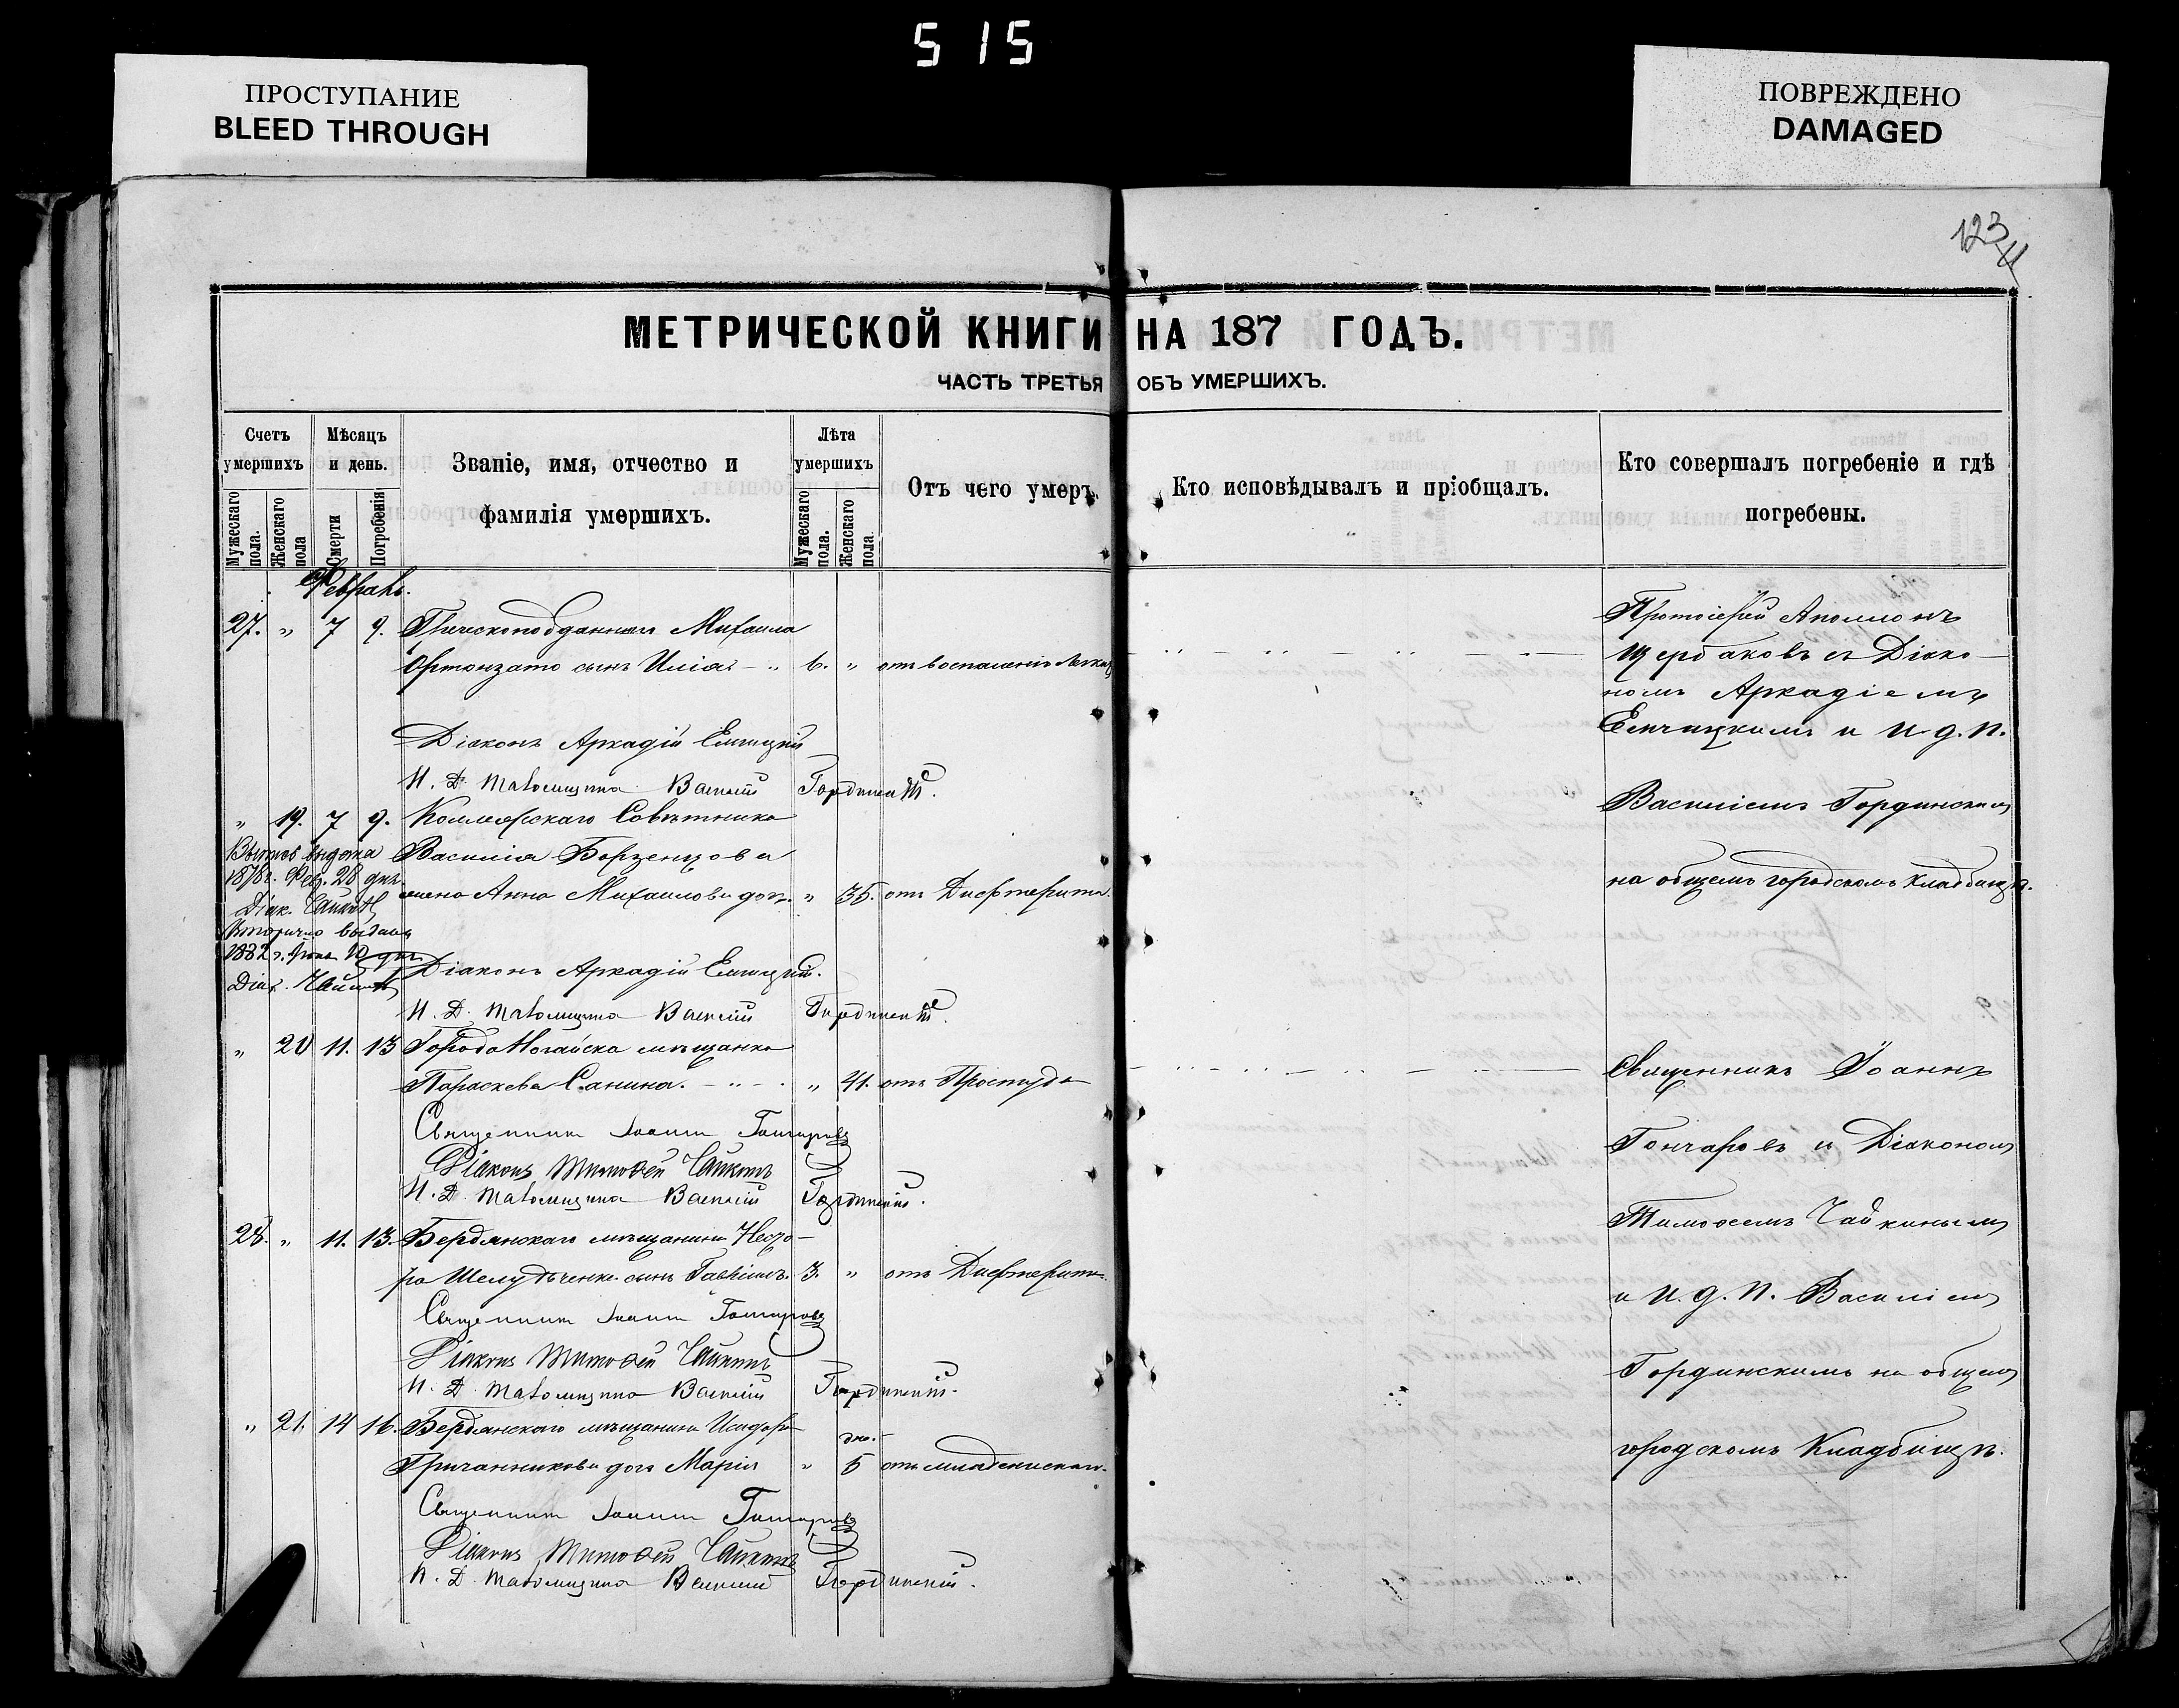 515
ПРОСТУПАНИЕ
BLEED THROUGH
ПОВРЕЖДЕНО
DAMAGED
123
МЕТРИЧЕСКОЙ КНИГИ НА 187 ГОДЪ.
ЧАСТЬ ТРЕТЬЯ ОБЪ УМЕРШИХЪ.
Счетъ умершихъ
Мужескаго пола.
Женскаго пола
Мѣсяцъ и день.
Смерти
Погребенія
Званіе, имя, отчество и фамилія умершихъ.
Лѣта умершихъ
Мужескаго пола.
Женскаго пола
Отъ чего умеръ.
Кто исповѣдывалъ и пріобщалъ.
Кто совершалъ погребеніе и гдѣ погребены.
Февраль.
27. " 7 9. Греческоподданнаго Михаила
сынъ Илія - " 6. " отъ воспаленія легких
Діаконъ Аркадій Емчицкій
И. Д. Псаломщика Василій Гординскій.
" 19. 7 9. Коллежскаго Совѣтника
Василія Борзенцова
жена Анна Михаилова доч. " 35. отъ Дифтерита.
выдана
1878 г. Фев. 28 дня.
Діак. Чайкинъ
Вторично выдана
1882 г. 10 дня
Діак. Чайкинъ
Діаконъ Аркадій Емчицкій.
И. Д. Псаломщика Василій Гординскій.
" 20 11. 13 Города Ногайска мѣщанка
Параскева Санина. - " - " 41. отъ Простуды
Священникъ Іоаннъ Гончаровъ
Діаконъ Тимоѳей Чайкинъ
И. Д. Псаломщика Василій Гординскій.
28. " 11. 13. Бердянскаго мѣщанина Несто-
ра Шелудченко сынъ Гавріилъ. 3. " отъ Дифтерита.
Священникъ Іоаннъ Гончаровъ
Діаконъ Тимоѳей Чайкинъ
И. Д. Псаломщика Василій Гординскій.
" 21. 14 16. Бердянскаго мѣщанина Исидора
дне.
Гричанникова дочь Марія " 5 отъ младенческой.
Священникъ Іоаннъ Гончаровъ
Діаконъ Тимоѳей Чайкинъ
И. Д. Псаломщика Василій Гординскій.
Протоіерей Аполлонъ
Щербаковъ съ Діако-
номъ Аркадіемъ
Емчицкимъ и И. д. П.
Василіемъ Гординскимъ
на общемъ городскомъ кладбищѣ.
Священникъ Іоаннъ
Гончаровъ съ Діакономъ
Тимоѳеемъ Чайкинымъ
и И. д. П. Василіемъ
Гординскимъ на общемъ
городскомъ Кладбищѣ.